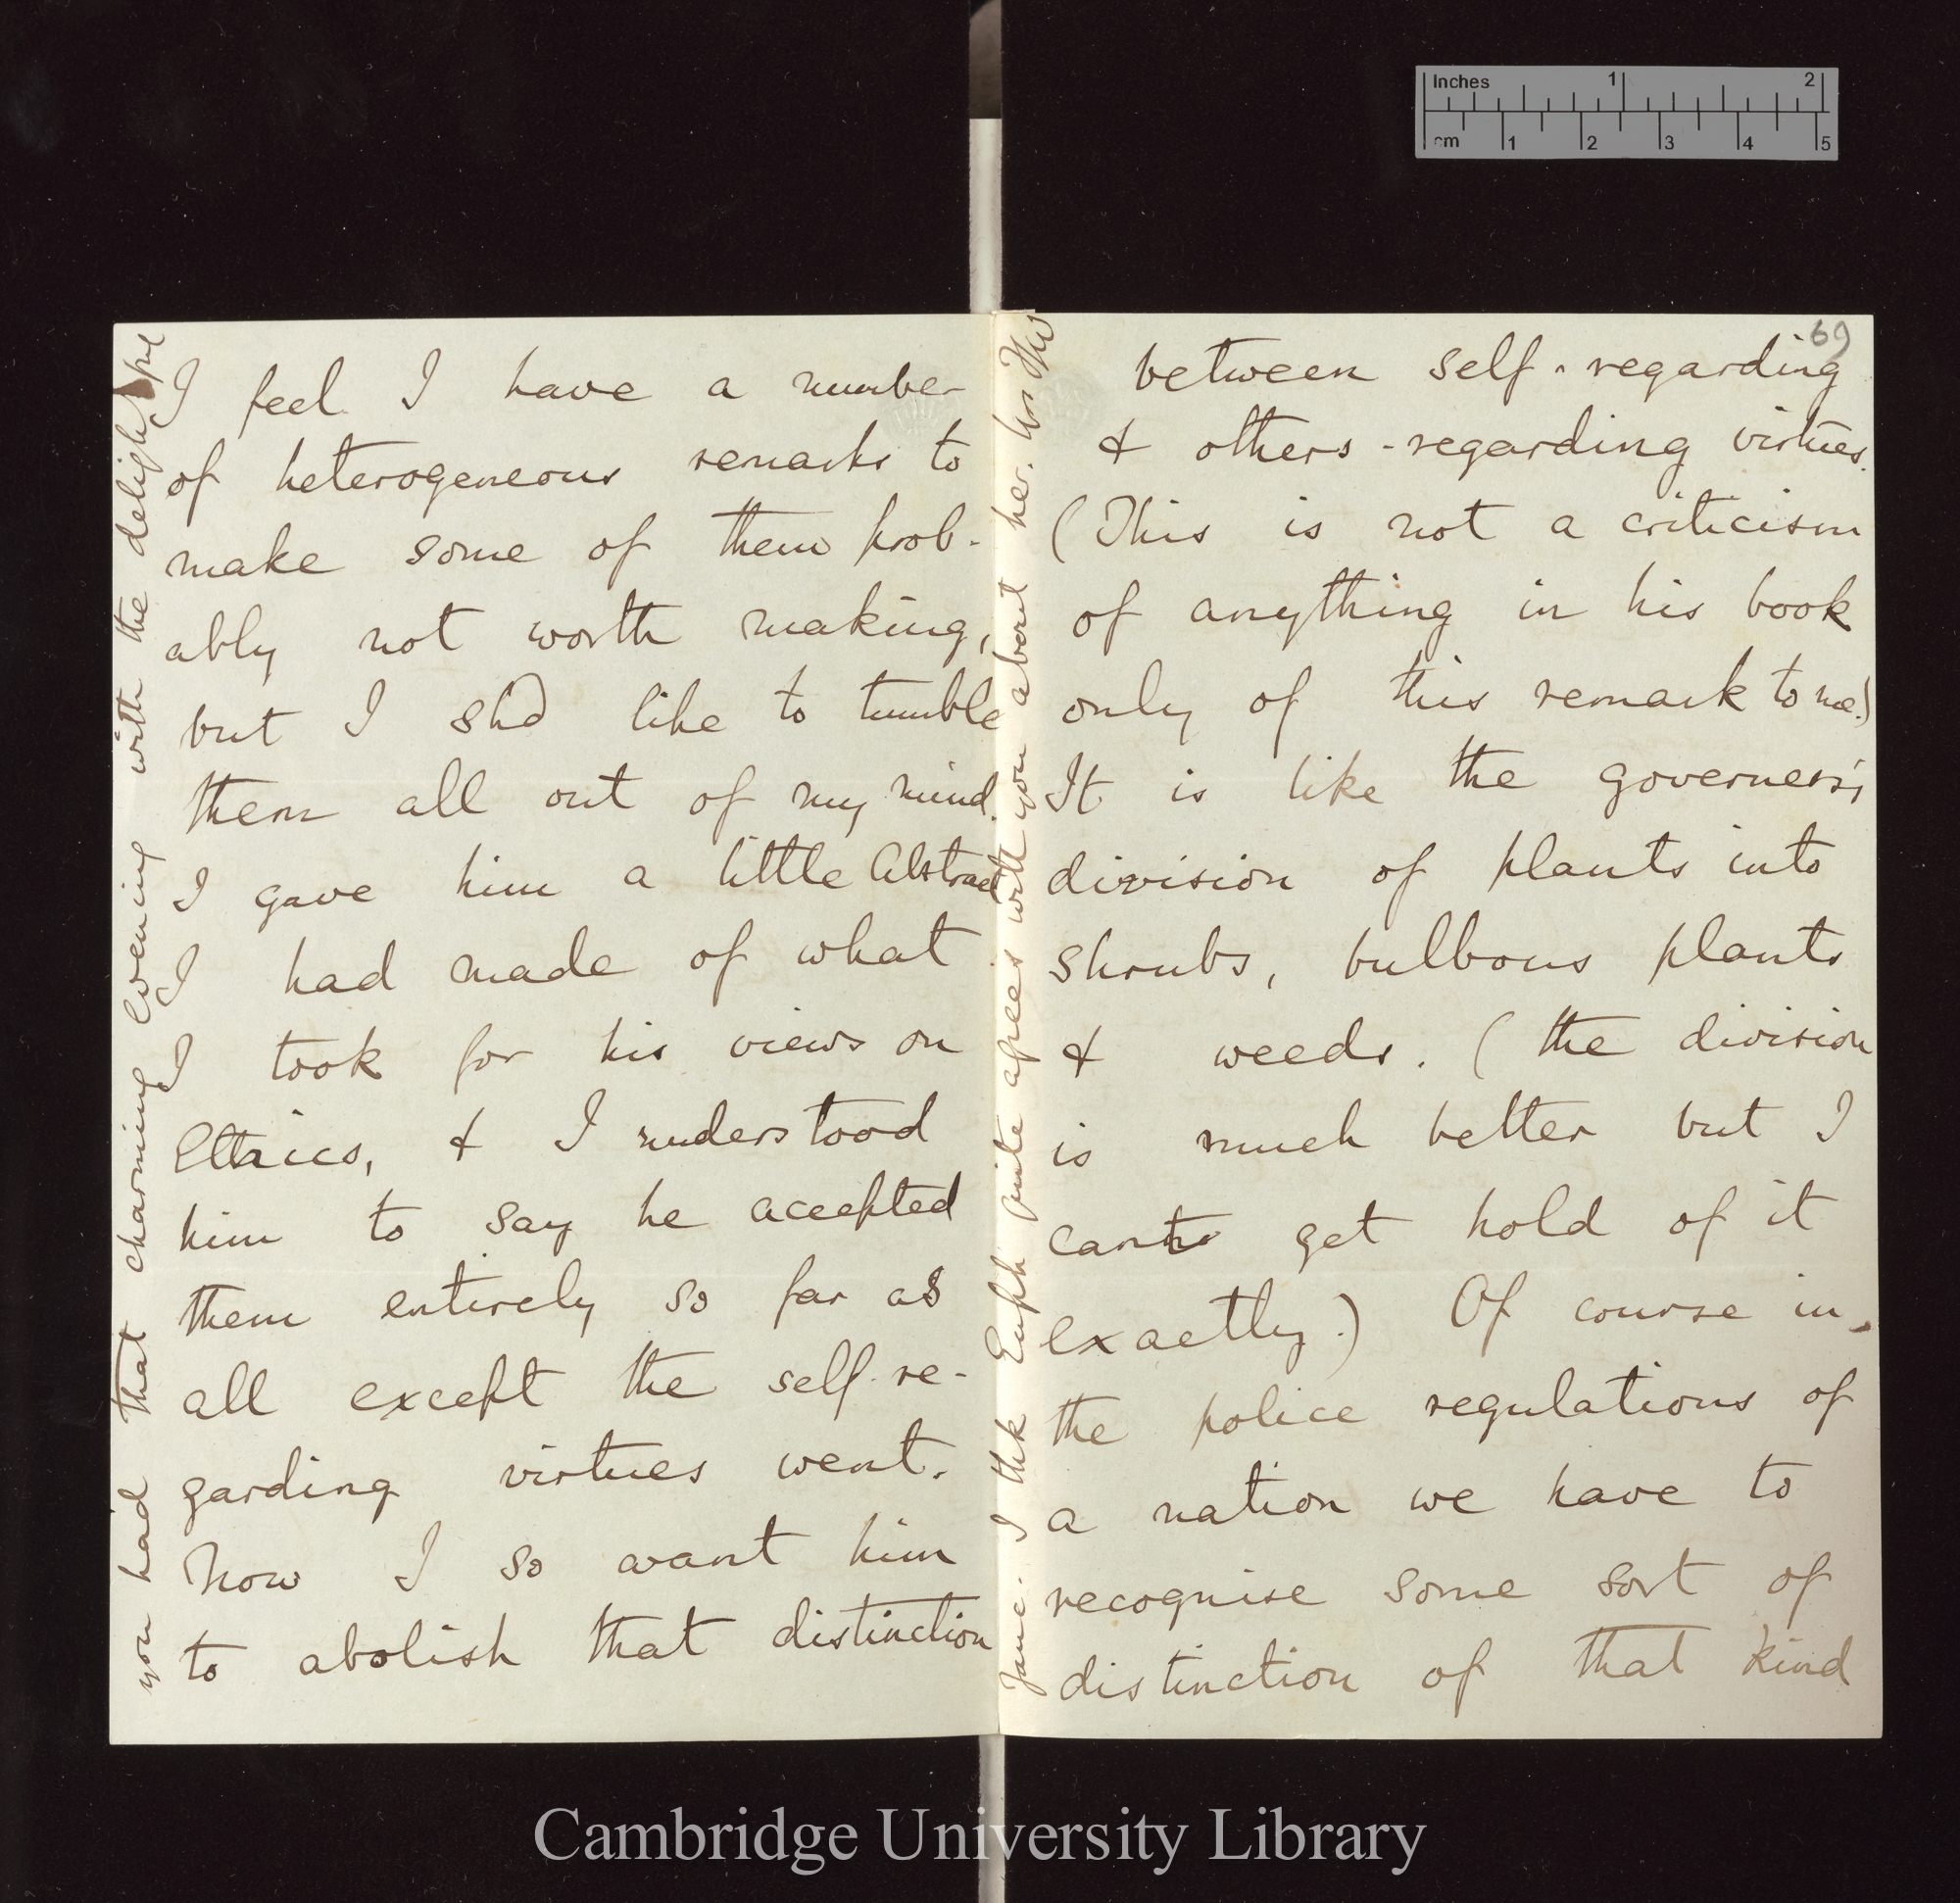 Inches 1 2
cm 1 2 3 4 5
69
I feel I have a number
of heterogeneous remarks to
make some of them prob-
ably not worth making,
but I shd like to tumble
them all out of my mind.
I gave him a little Abstract
I had made of what
I took for his views on
Ethics, & I understood
him to say he accepted
them entirely so far as
all except the self-re-
garding virtues went.
Now I so want him
to abolish that distinction
you had that charming evening with the delightful
between self-regarding
& others-regarding virtues.
(This is not a criticism
of anything in his book
only of this remark to me.)
It is like the governess's
division of plants into
shrubs, bulbous plants
& weeds. (the division
is much better but I
cant get hold of it
exactly.) Of course in
the police regulations of
a nation we have to
recognise some sort of
distinction of that kind
Jane. I thk Euph quite agrees with you about her.
Cambridge University Library